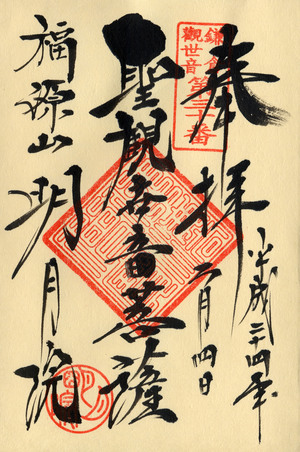 奉拝
平成二十四年
二月四日
鎌倉
觀世音
第三十番
聖観世音菩薩
福源山
明月院